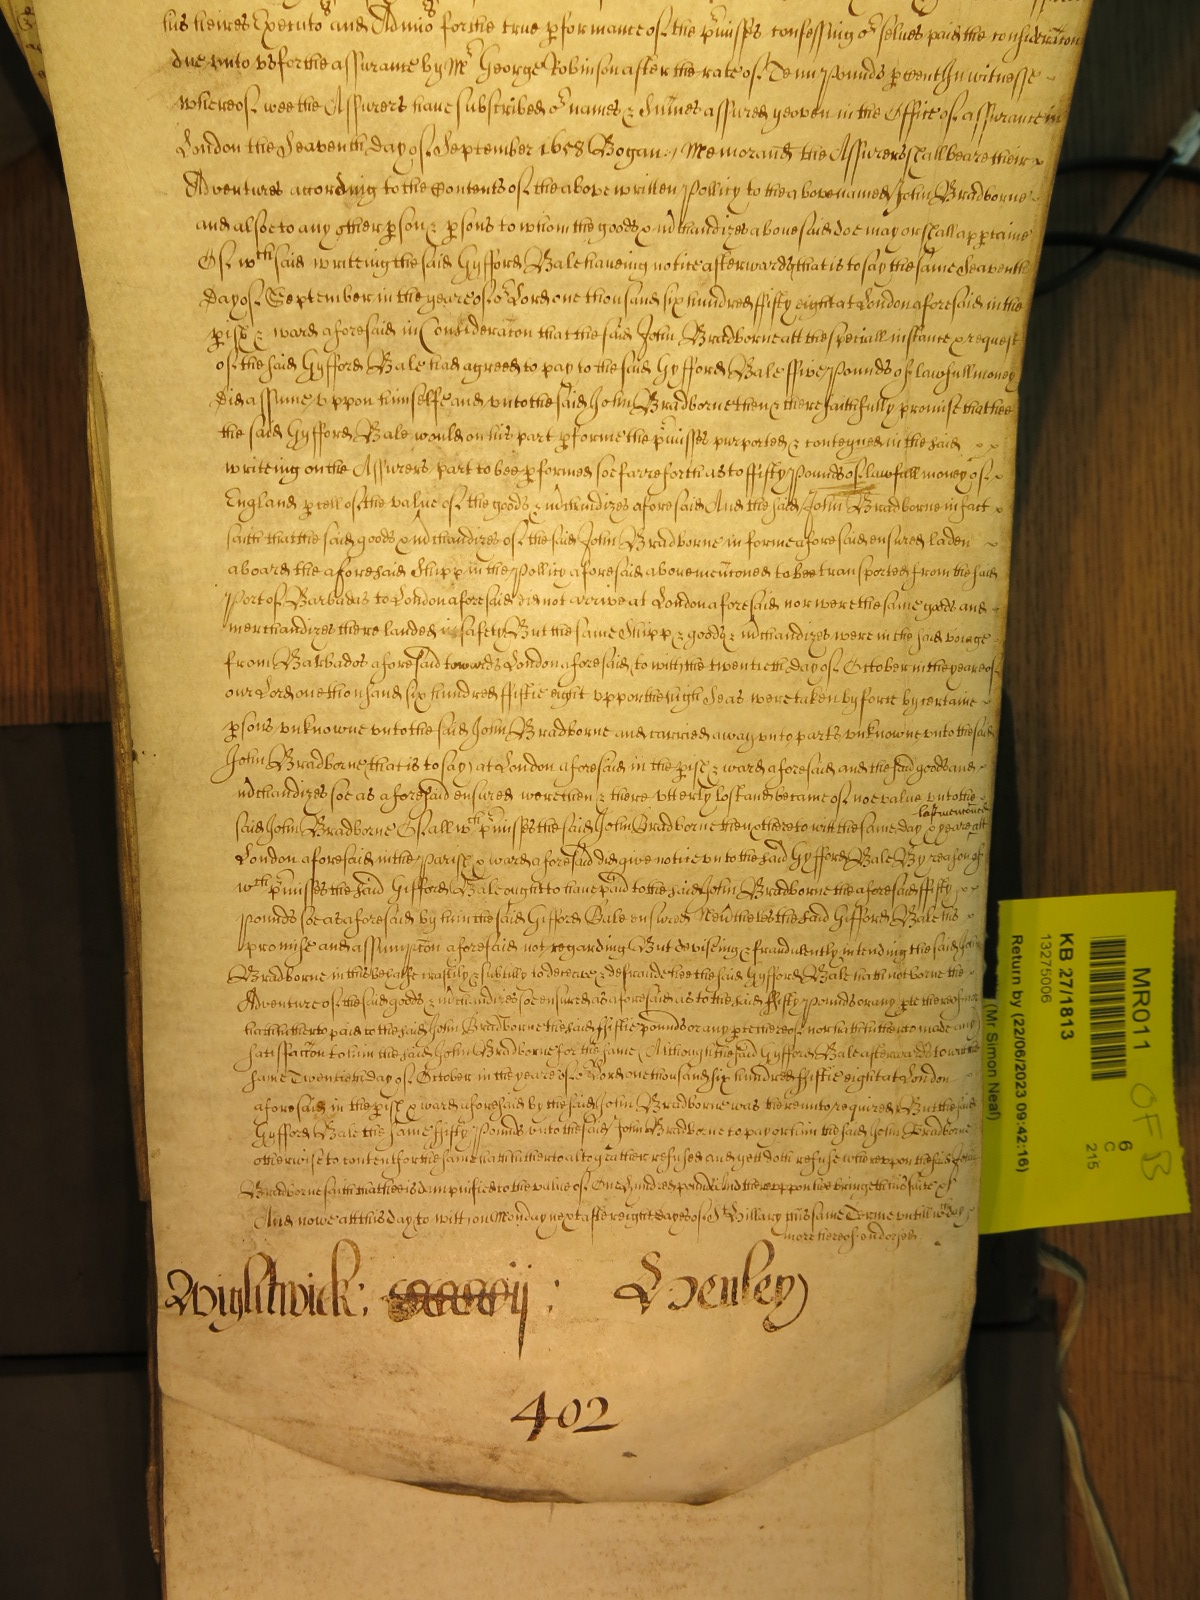 his heires Executors and Admios for the true pformance of the pmisses confessing or selves paid the consideracon
due unto us for the assurance by Mr George Robinson after the rate of Tenn Pounds p cent In witnesse
whereof wee the Assurers have subscribed or names & sumes assured yeoven in the Office of assurance in
London the Seaventh day of September 1658 Bogan Memorand the Assurers shall beare their
Adventures according to the Contents of the above written Pollicy to the abovenamed John Bradborne
and alsoe to any other pson & psons to whom the goods & mchandizes abovesaid doe may or shall apptaine
Of wch said writeing the said Gyfford Bale haveing notice afterwards that is to say the same Seaventh
day of September in the yeare of or Lord one thousand six hundred fifty eight at London aforesaid in the
pish & ward aforesaid in Consideracon that the said John Bradborne att the speciall instance & request
of the said Gyfford Bale had agreed to pay to the said Gyfford Bale ffive Pounds of lawfull money
did assume uppon himselfe and unto the said John Bradborne then & there faithfully promise that hee
the said Gyfford Bale would on his part pforme the pmisses purported & conteyned in the said
writeing on the Assurers part to bee pformed soe farre forth as to ffifty Pounds of lawfull money of
England pcell of the value of the goods & mchandizes aforesaid And the said John Bradborne in fact
saith that the said goods & mchandizes of the said John Bradborne in forme aforesaid ensured laden
aboard the aforesaid Shipp in the Pollicy aforesaid above mencioned to bee transported from the said
Port of Barbadas to London aforesaid did not arrive at London aforesaid nor were the same goods and
merchandizes there landed in safety But the same Shipp & goods & mchandizes were in the said voiage
from Barbados aforesaid towards London aforesaid to witt the twentieth day of October in the yeare of
our Lord one thousand six hundred ffiftie eight uppon the high Seas were taken by force by certaine
psons unknowne unto the said John Bradborne and carried away unto parts unknowne unto the said
John Bradborne (that is to say) at London aforesaid in the pish & ward aforesaid and the said goods and
mchandizes soe as aforesaid ensured were then & there utterly lost and became of noe value unto the
said John Bradborne Of all wch pmisses the said John Bradborne then & there to witt the same day & yeare last mencioned att
London aforesaid in the Parish & ward aforesaid did give notice unto the said Gyfford Bale By reason of
wch pmisses the said Gifford Bale ought to have paid to the said John Bradborne the aforesaid ffifty
pounds soe as aforesaid by him the said Gifford Bale ensured Nevtheles the said Gifford Bale his
promise and assumpcon aforesaid not regarding But devising & fraudulently intending the said John
Bradborne in this behalfe craftily & subtilly to deceave & defraude hee the said Gyfford Bale hath not borne the
Adventure of the said goods & mchandizes soe ensured as aforesaid as to the said ffifty Pounds or any pte thereof nor
hath hitherto paid to the said John Bradborne the said ffiftie pounds or any pte thereof nor hath hitherto made any
satisfaccon to him the said John Bradborne for the same (Although the said Gyfford Bale afterwards to witt the
same Twentieth day of October in the yeare of or Lord one thousand six hundred ffiftie eight at London
aforesaid in the pish & ward aforesaid by the said John Bradborne was thereunto required) But the said
Gyfford Bale the same ffifty Pounds unto the said John Bradborne to pay or him the said John Bradborne
otherwise to content for the same hath hitherto altogeather refused and yett doth refuse whereuppon the said John
Bradborne saith that hee is dampnified to the value of One hundred pounds And thereuppon hee bringeth his suite &c
And now att this day to witt on Monday next after eight dayes of St Hillary this same Terme untill wch day
more thereof endorsed
Wightwick: Henley
402
MR011
KB 27/1813
13275006
Return by (22/06/2023 09:42:16)
(Mr Simon Neal)
6
C
215
OF B